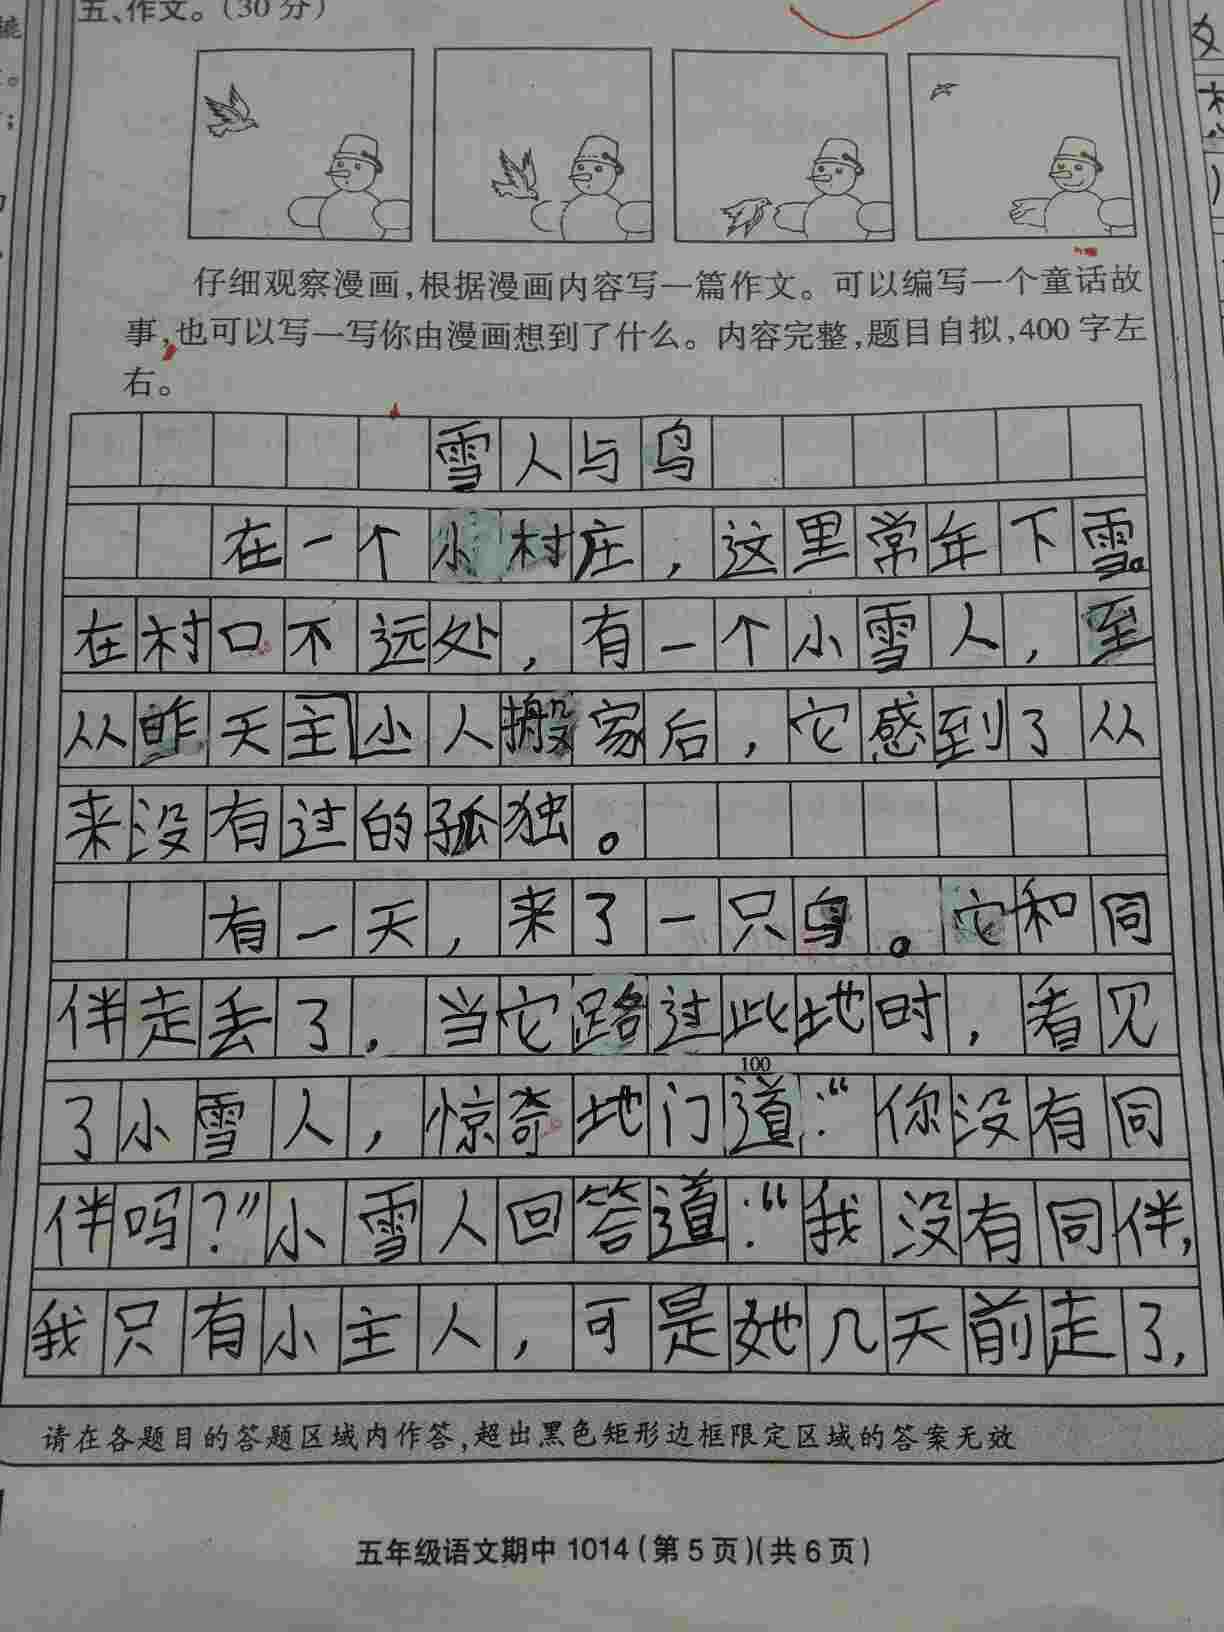 五、作文。(30分)
仔细观察漫画,根据漫画内容写一篇作文。可以编写一个童话故
事,也可以写一写你由漫画想到了什么。内容完整,题目自拟,400字左
右。
雪人与鸟
在一个小村庄,这里常年下雪。
在村口不远处,有一个小雪人,至
从昨天主小人搬家后,它感到了从
来没有过的孤独。
有一天,来了一只鸟。它和同
伴走丢了,当它路过此地时,看见
100
了小雪人,惊奇地门道:“你没有同
伴吗?”小雪人回答道:“我没有同伴,
我只有小主人,可是她几天前走了,
请在各题目的答题区域内作答,超出黑色矩形边框限定区域的答案无效
五年级语文期中1014(第5页)(共6页)